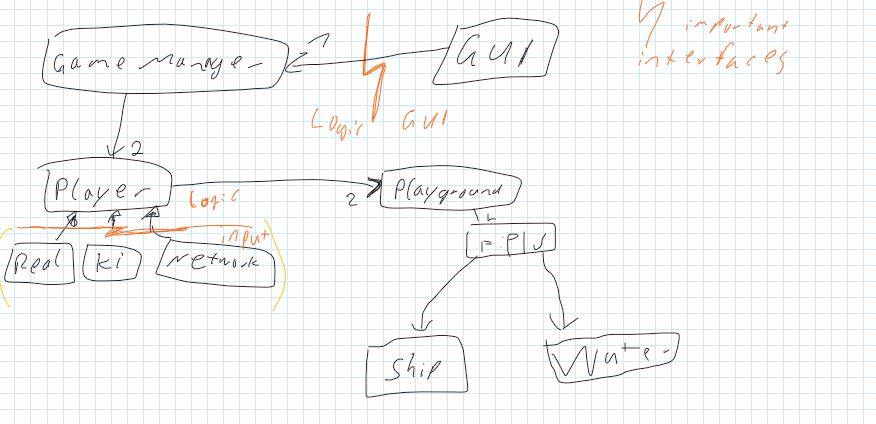 Game Manager
1
GUI
important
interfaces
Logic GUI
2
Player
Logic
2
Playground
input
Real
Ki
Network
Ship
Water